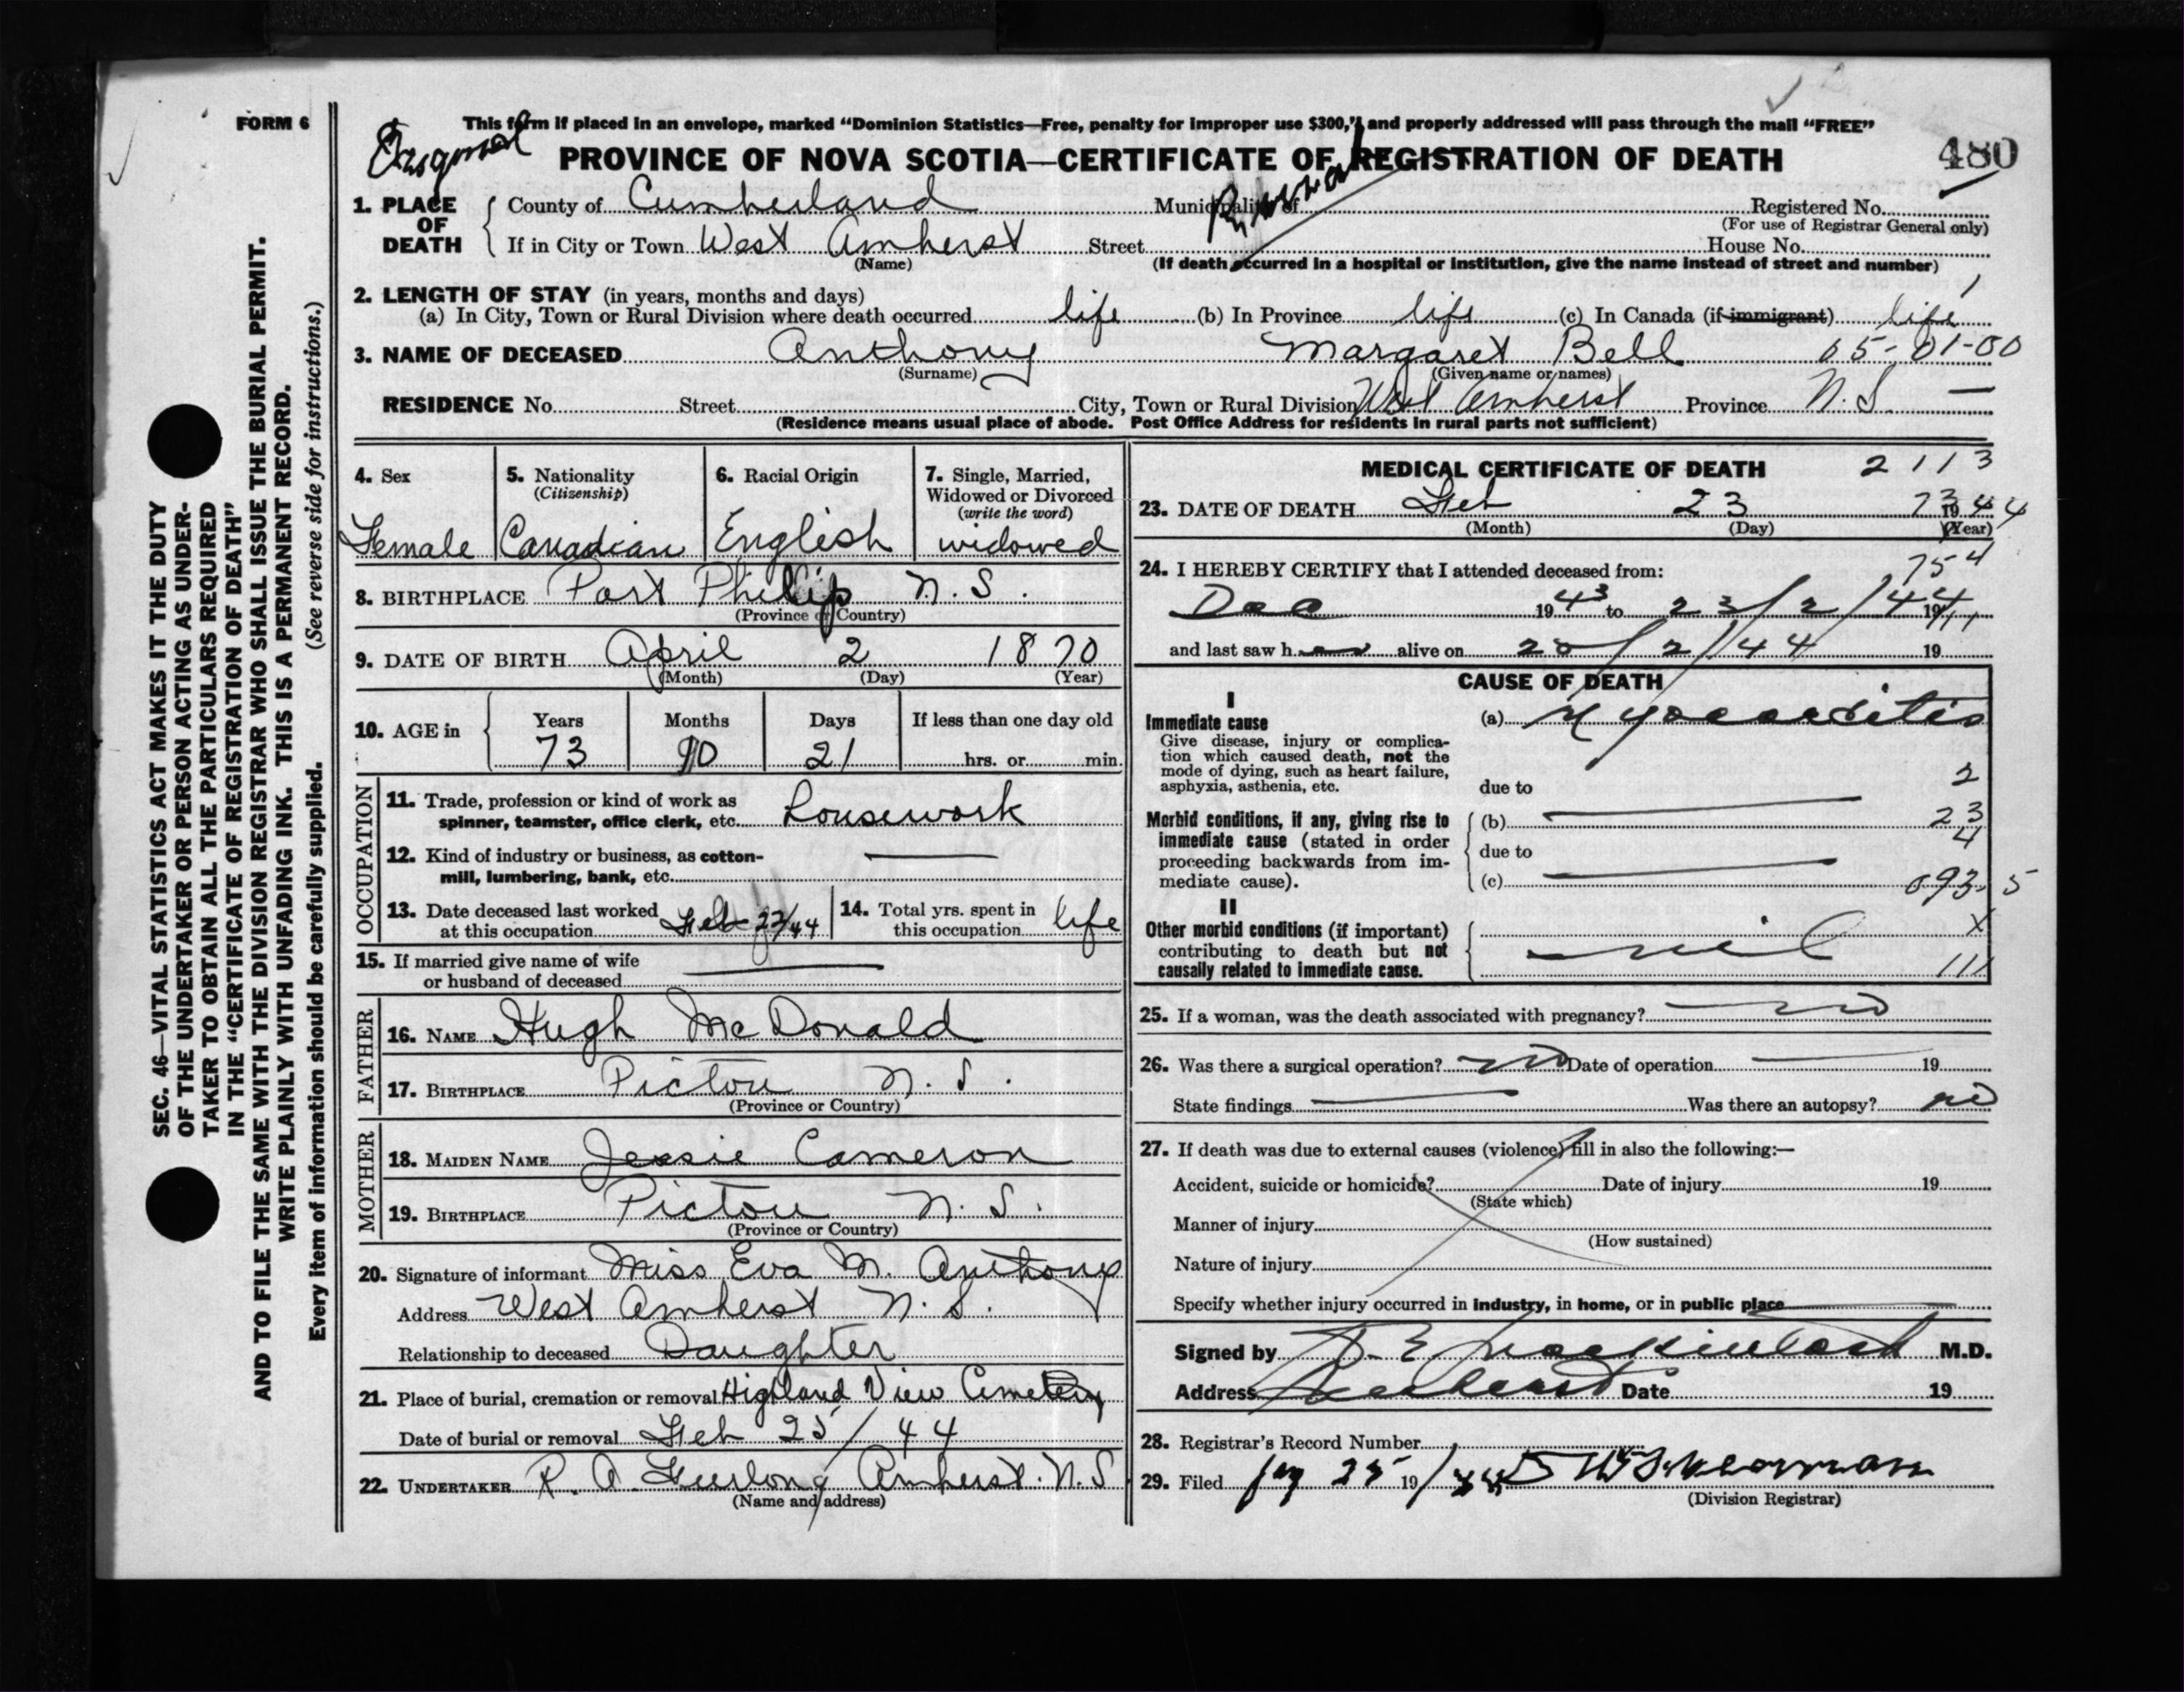 FORM 6
This form if placed in an envelope, marked “Dominion Statistics—Free, penalty for improper use $300,” and properly addressed will pass through the mail “FREE”
PROVINCE OF NOVA SCOTIA—CERTIFICATE OF REGISTRATION OF DEATH
480
1. PLACE OF DEATH
County of Cumberland Municipality of Registered No.
(For use of Registrar General only)
If in City or Town West Amherst Street House No.
(Name) (If death occurred in a hospital or institution, give the name instead of street and number)
2. LENGTH OF STAY (in years, months and days)
(a) In City, Town or Rural Division where death occurred life (b) In Province life (c) In Canada (if immigrant) life
3. NAME OF DECEASED Anthony Margaret Bell 05-01-00
(Surname) (Given name or names)
RESIDENCE No. Street City, Town or Rural Division West Amherst Province N.S. —
(Residence means usual place of abode. Post Office Address for residents in rural parts not sufficient)
4. Sex
Female
5. Nationality
(Citizenship)
Canadian
6. Racial Origin
English
7. Single, Married,
Widowed or Divorced
(write the word)
widowed
8. BIRTHPLACE Port Phillip N.S.
(Province or Country)
9. DATE OF BIRTH April 2 1870
(Month) (Day) (Year)
10. AGE in
Years Months Days If less than one day old
73 10 21 hrs. or min.
OCCUPATION
11. Trade, profession or kind of work as
spinner, teamster, office clerk, etc. Housework
12. Kind of industry or business, as cotton-
mill, lumbering, bank, etc. —
13. Date deceased last worked
at this occupation Feb 22/44
14. Total yrs. spent in
this occupation life
15. If married give name of wife
or husband of deceased —
FATHER
16. NAME Hugh McDonald
17. BIRTHPLACE Pictou N.S.
(Province or Country)
MOTHER
18. MAIDEN NAME Jessie Cameron
19. BIRTHPLACE Pictou N.S.
(Province or Country)
20. Signature of informant Miss Eva M. Anthony
Address West Amherst N.S.
Relationship to deceased Daughter
21. Place of burial, cremation or removal Highland View Cemetery
Date of burial or removal Feb 25/44
22. UNDERTAKER R. A. Furlong Amherst. N.S.
(Name and address)
MEDICAL CERTIFICATE OF DEATH 2113
23. DATE OF DEATH Feb 23 1944
(Month) (Day) (Year)
754
24. I HEREBY CERTIFY that I attended deceased from:
Dec 1943 to 23/2/44 19
and last saw her alive on 20/2/44 19
CAUSE OF DEATH
I
Immediate cause (a) Myocarditis
Give disease, injury or complica-
tion which caused death, not the
mode of dying, such as heart failure,
asphyxia, asthenia, etc.
due to — 2
Morbid conditions, if any, giving rise to
immediate cause (stated in order
proceeding backwards from im-
mediate cause).
(b) — 23
due to — 4
(c) — 093-5
II
Other morbid conditions (if important)
contributing to death but not
causally related to immediate cause.
X
nil
111
25. If a woman, was the death associated with pregnancy? no
26. Was there a surgical operation? no Date of operation — 19
State findings — Was there an autopsy? no
27. If death was due to external causes (violence) fill in also the following:—
Accident, suicide or homicide? Date of injury 19
(State which)
Manner of injury
(How sustained)
Nature of injury
Specify whether injury occurred in industry, in home, or in public place
Signed by D. E. Mackintosh M.D.
Address Amherst Date 19
28. Registrar's Record Number
29. Filed 25 19
(Division Registrar)
SEC. 46—VITAL STATISTICS ACT MAKES IT THE DUTY
OF THE UNDERTAKER OR PERSON ACTING AS UNDER-
TAKER TO OBTAIN ALL THE PARTICULARS REQUIRED
IN THE “CERTIFICATE OF REGISTRATION OF DEATH”
AND TO FILE THE SAME WITH THE DIVISION REGISTRAR WHO SHALL ISSUE THE BURIAL PERMIT.
WRITE PLAINLY WITH UNFADING INK. THIS IS A PERMANENT RECORD.
Every item of information should be carefully supplied. (See reverse side for instructions.)